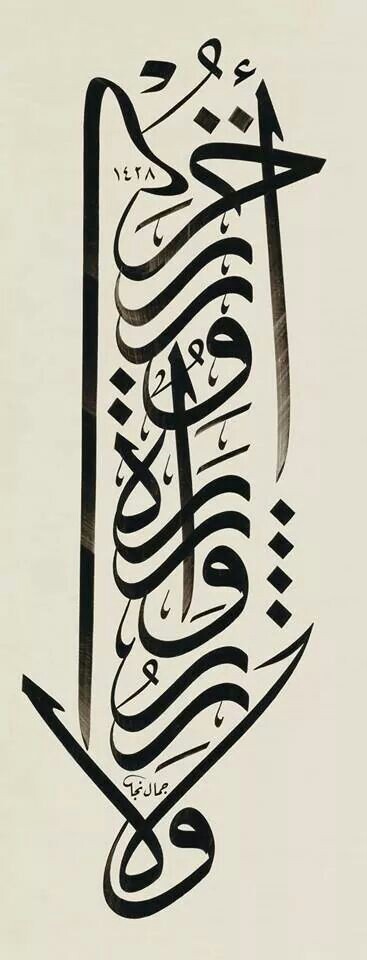 ولا تزر وازرة وزر أخرى
جمال نجا
١٤٢٨